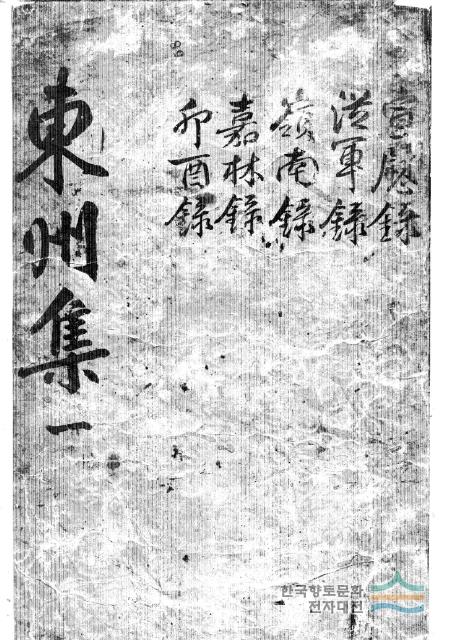 宣慰錄
從軍錄
嶺南錄
嘉林錄
卯酉錄
東州集 一
한국향토문화
전자대전